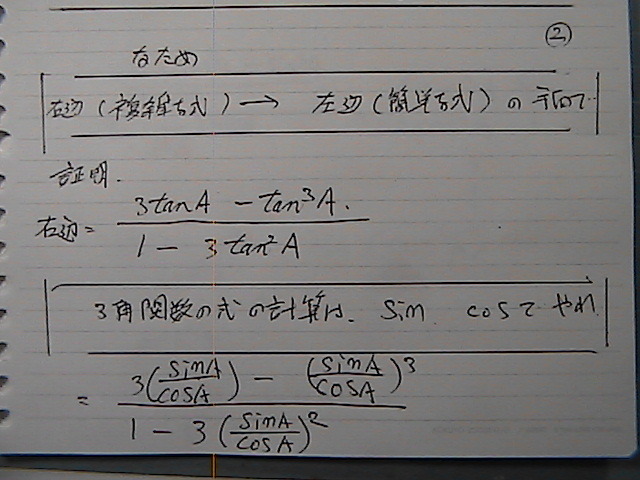 ②
なため
右辺(複雑な式) → 左辺(簡単な式)の
証明.
右辺 = \frac{3tanA - tan^3A.}{1 - 3tan^2A}
3角関数の式の計算は、sin cosでやれ
= \frac{3(\frac{sinA}{cosA}) - (\frac{sinA}{cosA})^3}{1 - 3(\frac{sinA}{cosA})^2}